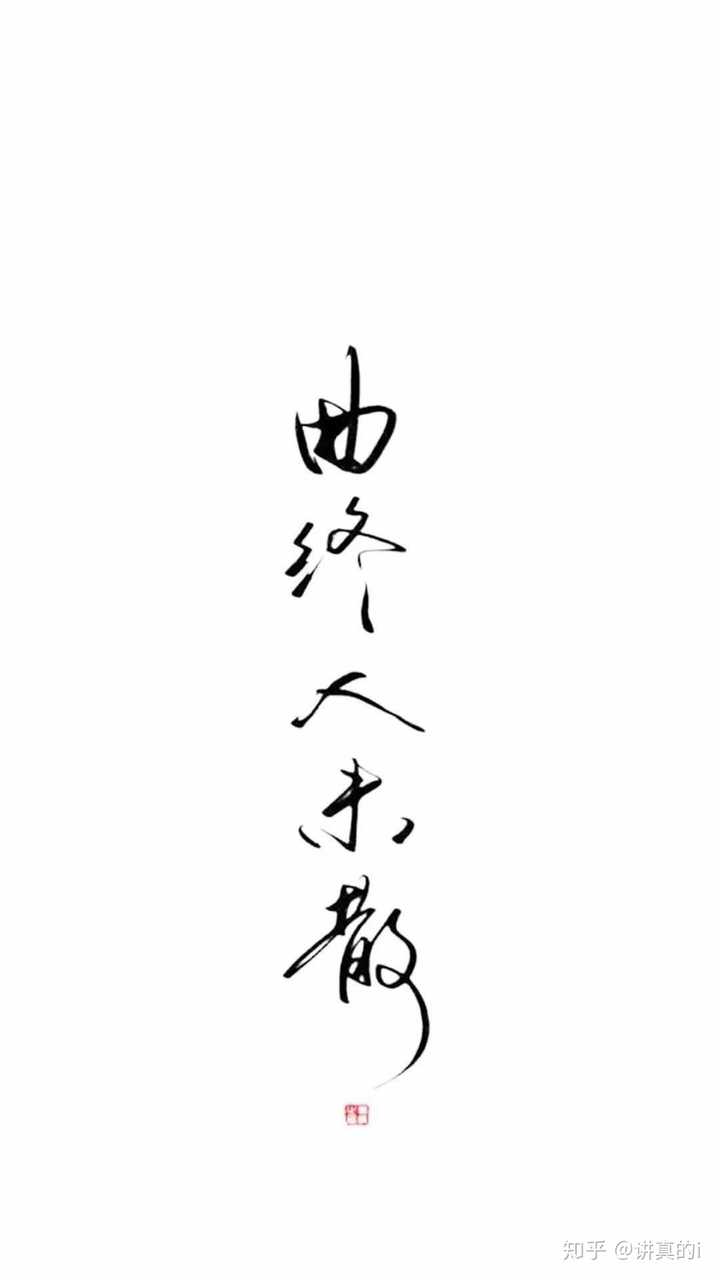 曲终人未散
知乎 @讲真的i